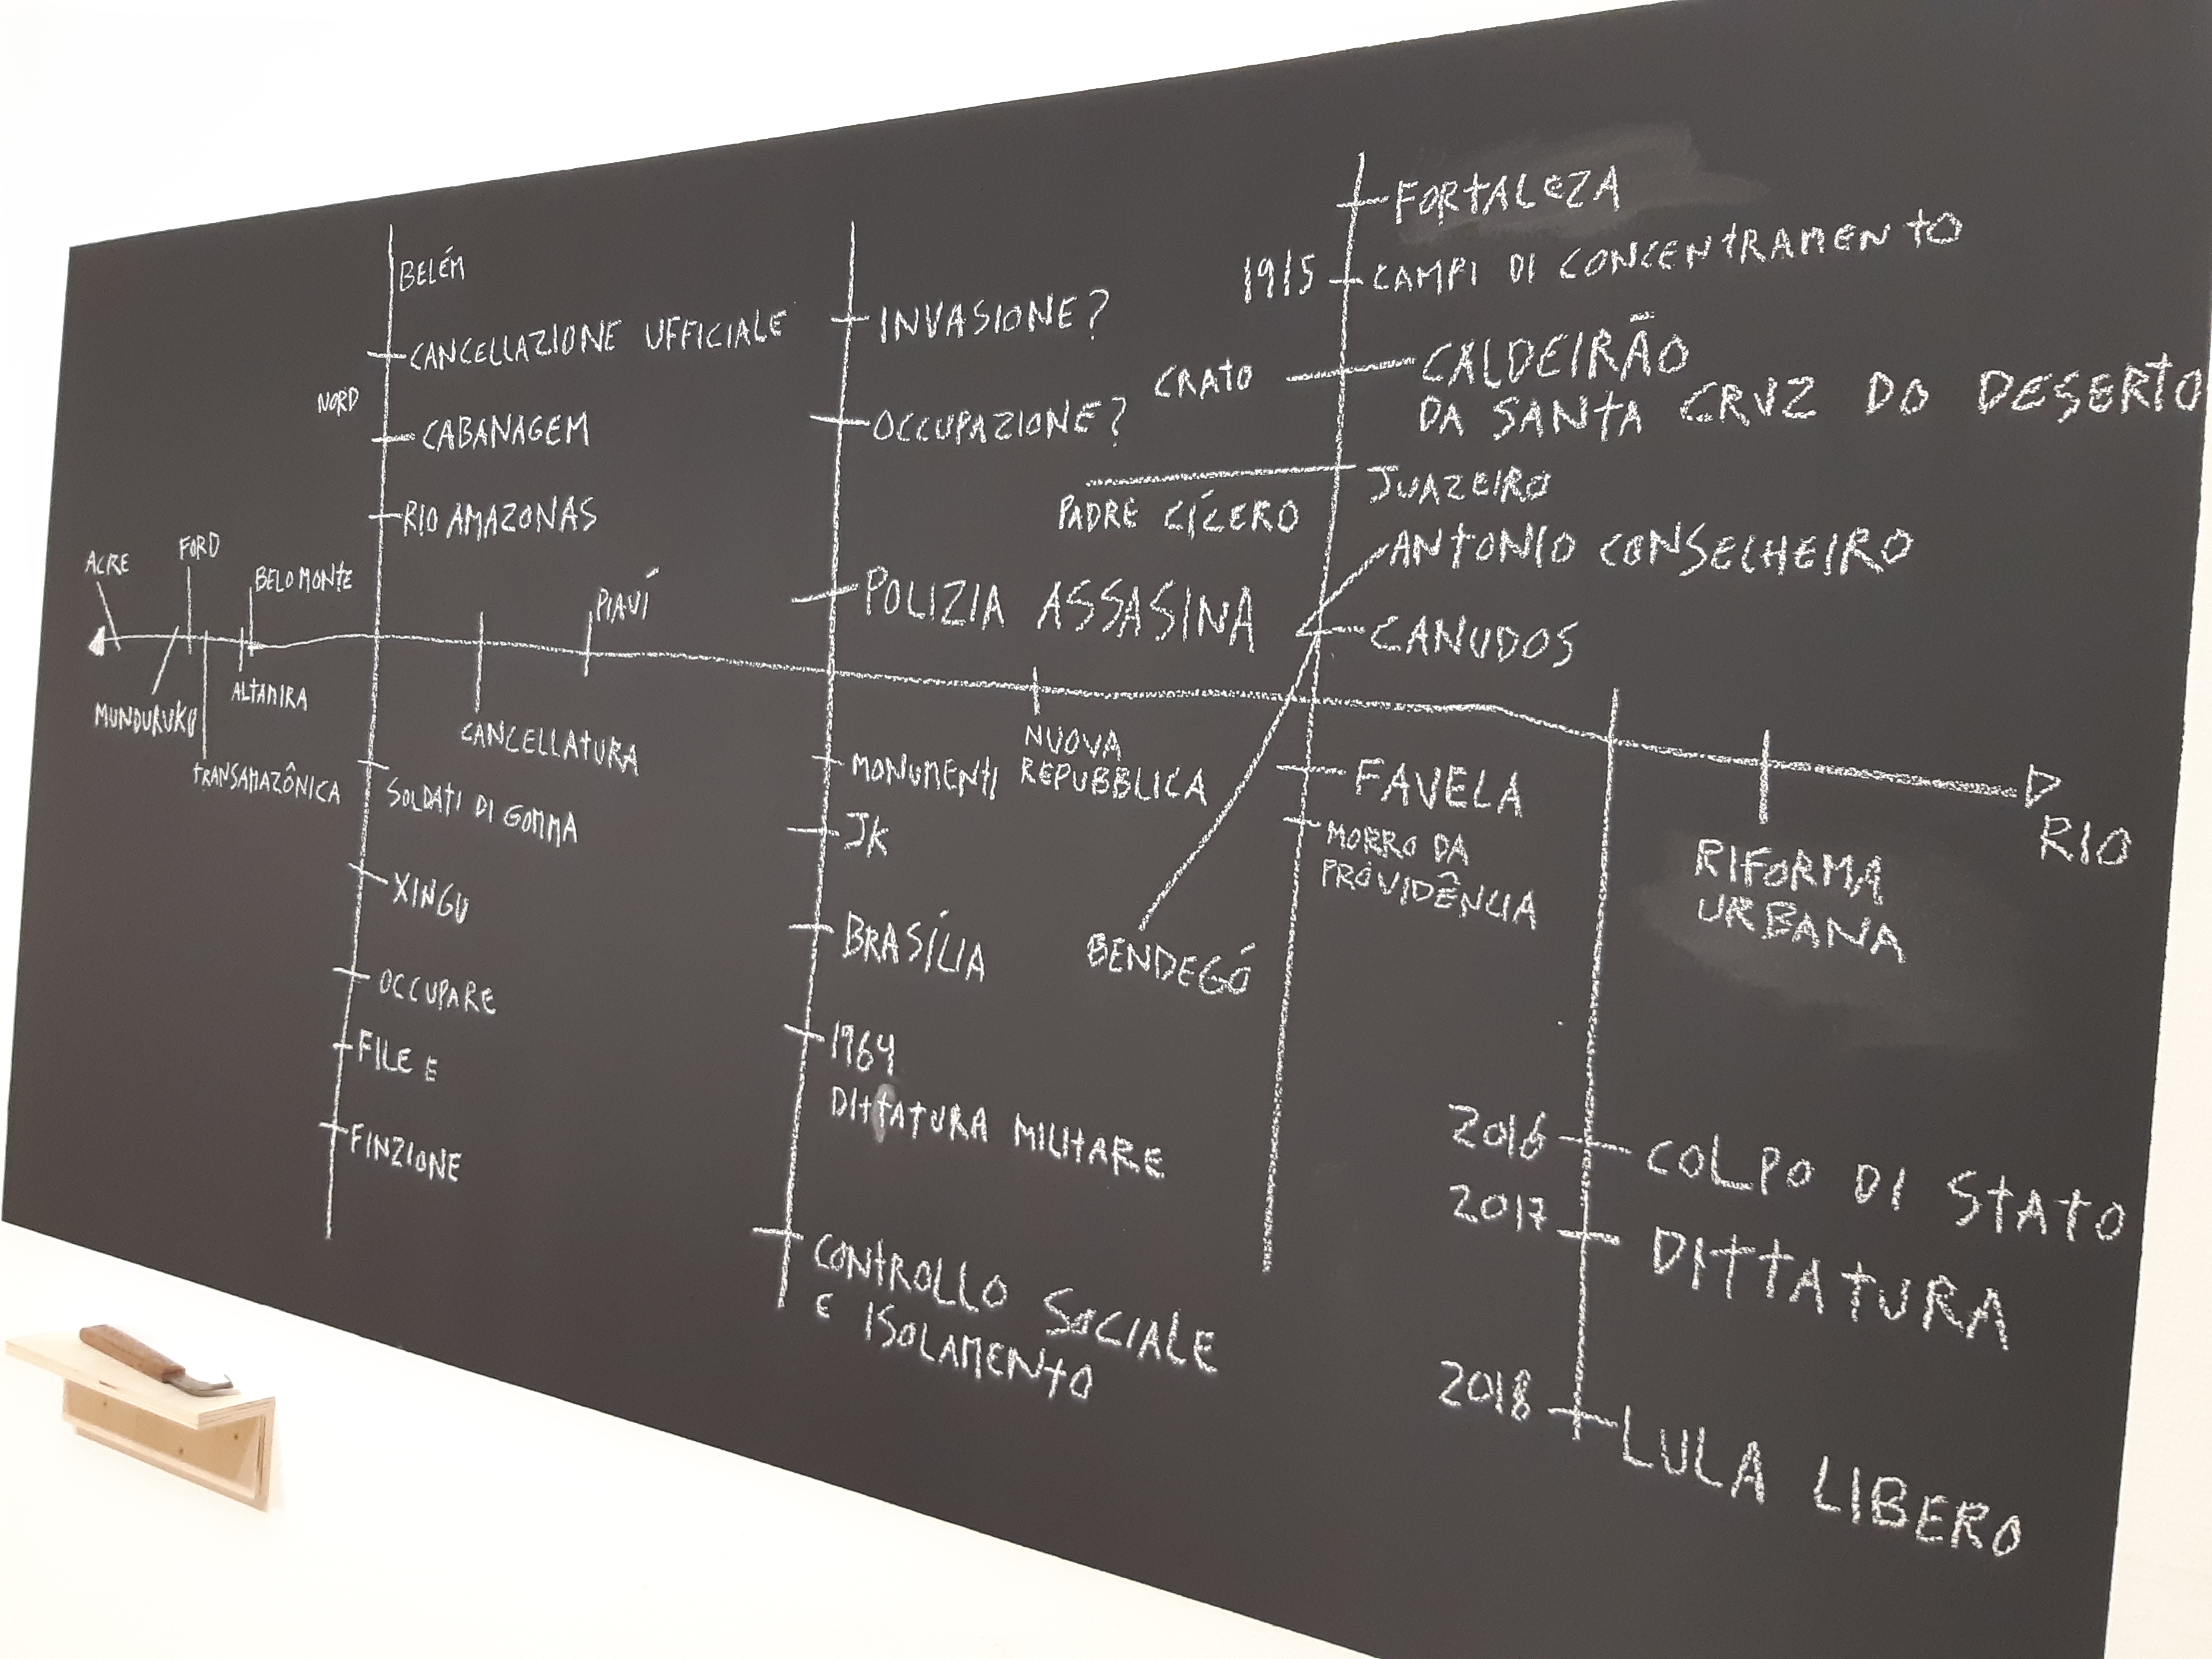 BELÉM
CANCELLAZIONE UFFICIALE
NORD
CABANAGEM
RIO AMAZONAS
ACRE
FORD
BELO MONTE
MUNDURUKU
ALTAMIRA
TRANSAMAZÔNICA
PIAUÍ
CANCELLATURA
SOLDATI DI GOMMA
XINGU
OCCUPARE
FILE E
FINZIONE
INVASIONE?
OCCUPAZIONE?
POLIZIA ASSASINA
NUOVA
REPUBBLICA
MONUMENTI
JK
BRASÍLIA
1964
DITTATURA MILITARE
CONTROLLO SOCIALE
E ISOLAMENTO
FORTALEZA
1915 CAMPI DI CONCENTRAMENTO
CRATO
CALDEIRÃO
DA SANTA CRUZ DO DESERTO
PADRE CÍCERO
JUAZEIRO
ANTONIO CONSELHEIRO
CANUDOS
BENDEGÓ
FAVELA
MORRO DA
PROVIDÊNCIA
RIFORMA
URBANA
RIO
2016 COLPO DI STATO
2017 DITTATURA
2018 LULA LIBERO